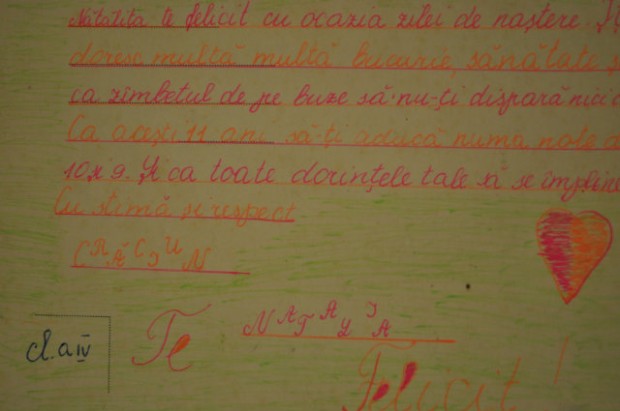 te felicit cu ocazia zilei de naștere.
doresc multă multă bucurie, sănătate
ca zîmbetul de pe buze să-nu-ți dispară nici
Ca acești 11 ani să-ți aducă numa note
10 și 9. Și ca toate dorințele tale să se
Cu stimă și respect
CRĂCIUN
NATALIA
cl. a IV
Te
Felicit!